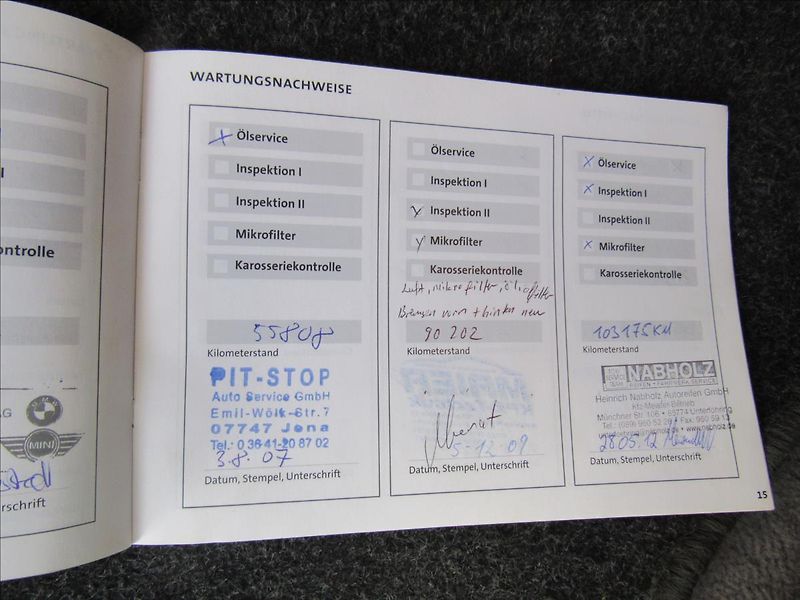 ontrolle
AG
BMW
MINI
rschrift
WARTUNGSNACHWEISE
x Ölservice
Inspektion I
Inspektion II
Mikrofilter
Karosseriekontrolle
55808
Kilometerstand
PIT-STOP
Auto Service GmbH
Emil-Wölk-Str.7
07747 Jena
Tel.: 0 36 41-20 87 02
3.8.07
Datum, Stempel, Unterschrift
Ölservice
Inspektion I
x Inspektion II
x Mikrofilter
Karosseriekontrolle
Luft, mikrofilter, öl, ölfilter
Bremsen vorn + hinten neu
90 202
Kilometerstand
5-12 09
Datum, Stempel, Unterschrift
x Ölservice
x Inspektion I
Inspektion II
x Mikrofilter
Karosseriekontrolle
103175KM
Kilometerstand
NABHOLZ
REIFEN • FAHRWERK SERVICE
Heinrich Nabholz Autoreifen GmbH
Kfz-Meister-Betrieb
Münchner Str. 106 • 85774 Unterföhring
28.05.12
Datum, Stempel, Unterschrift
15